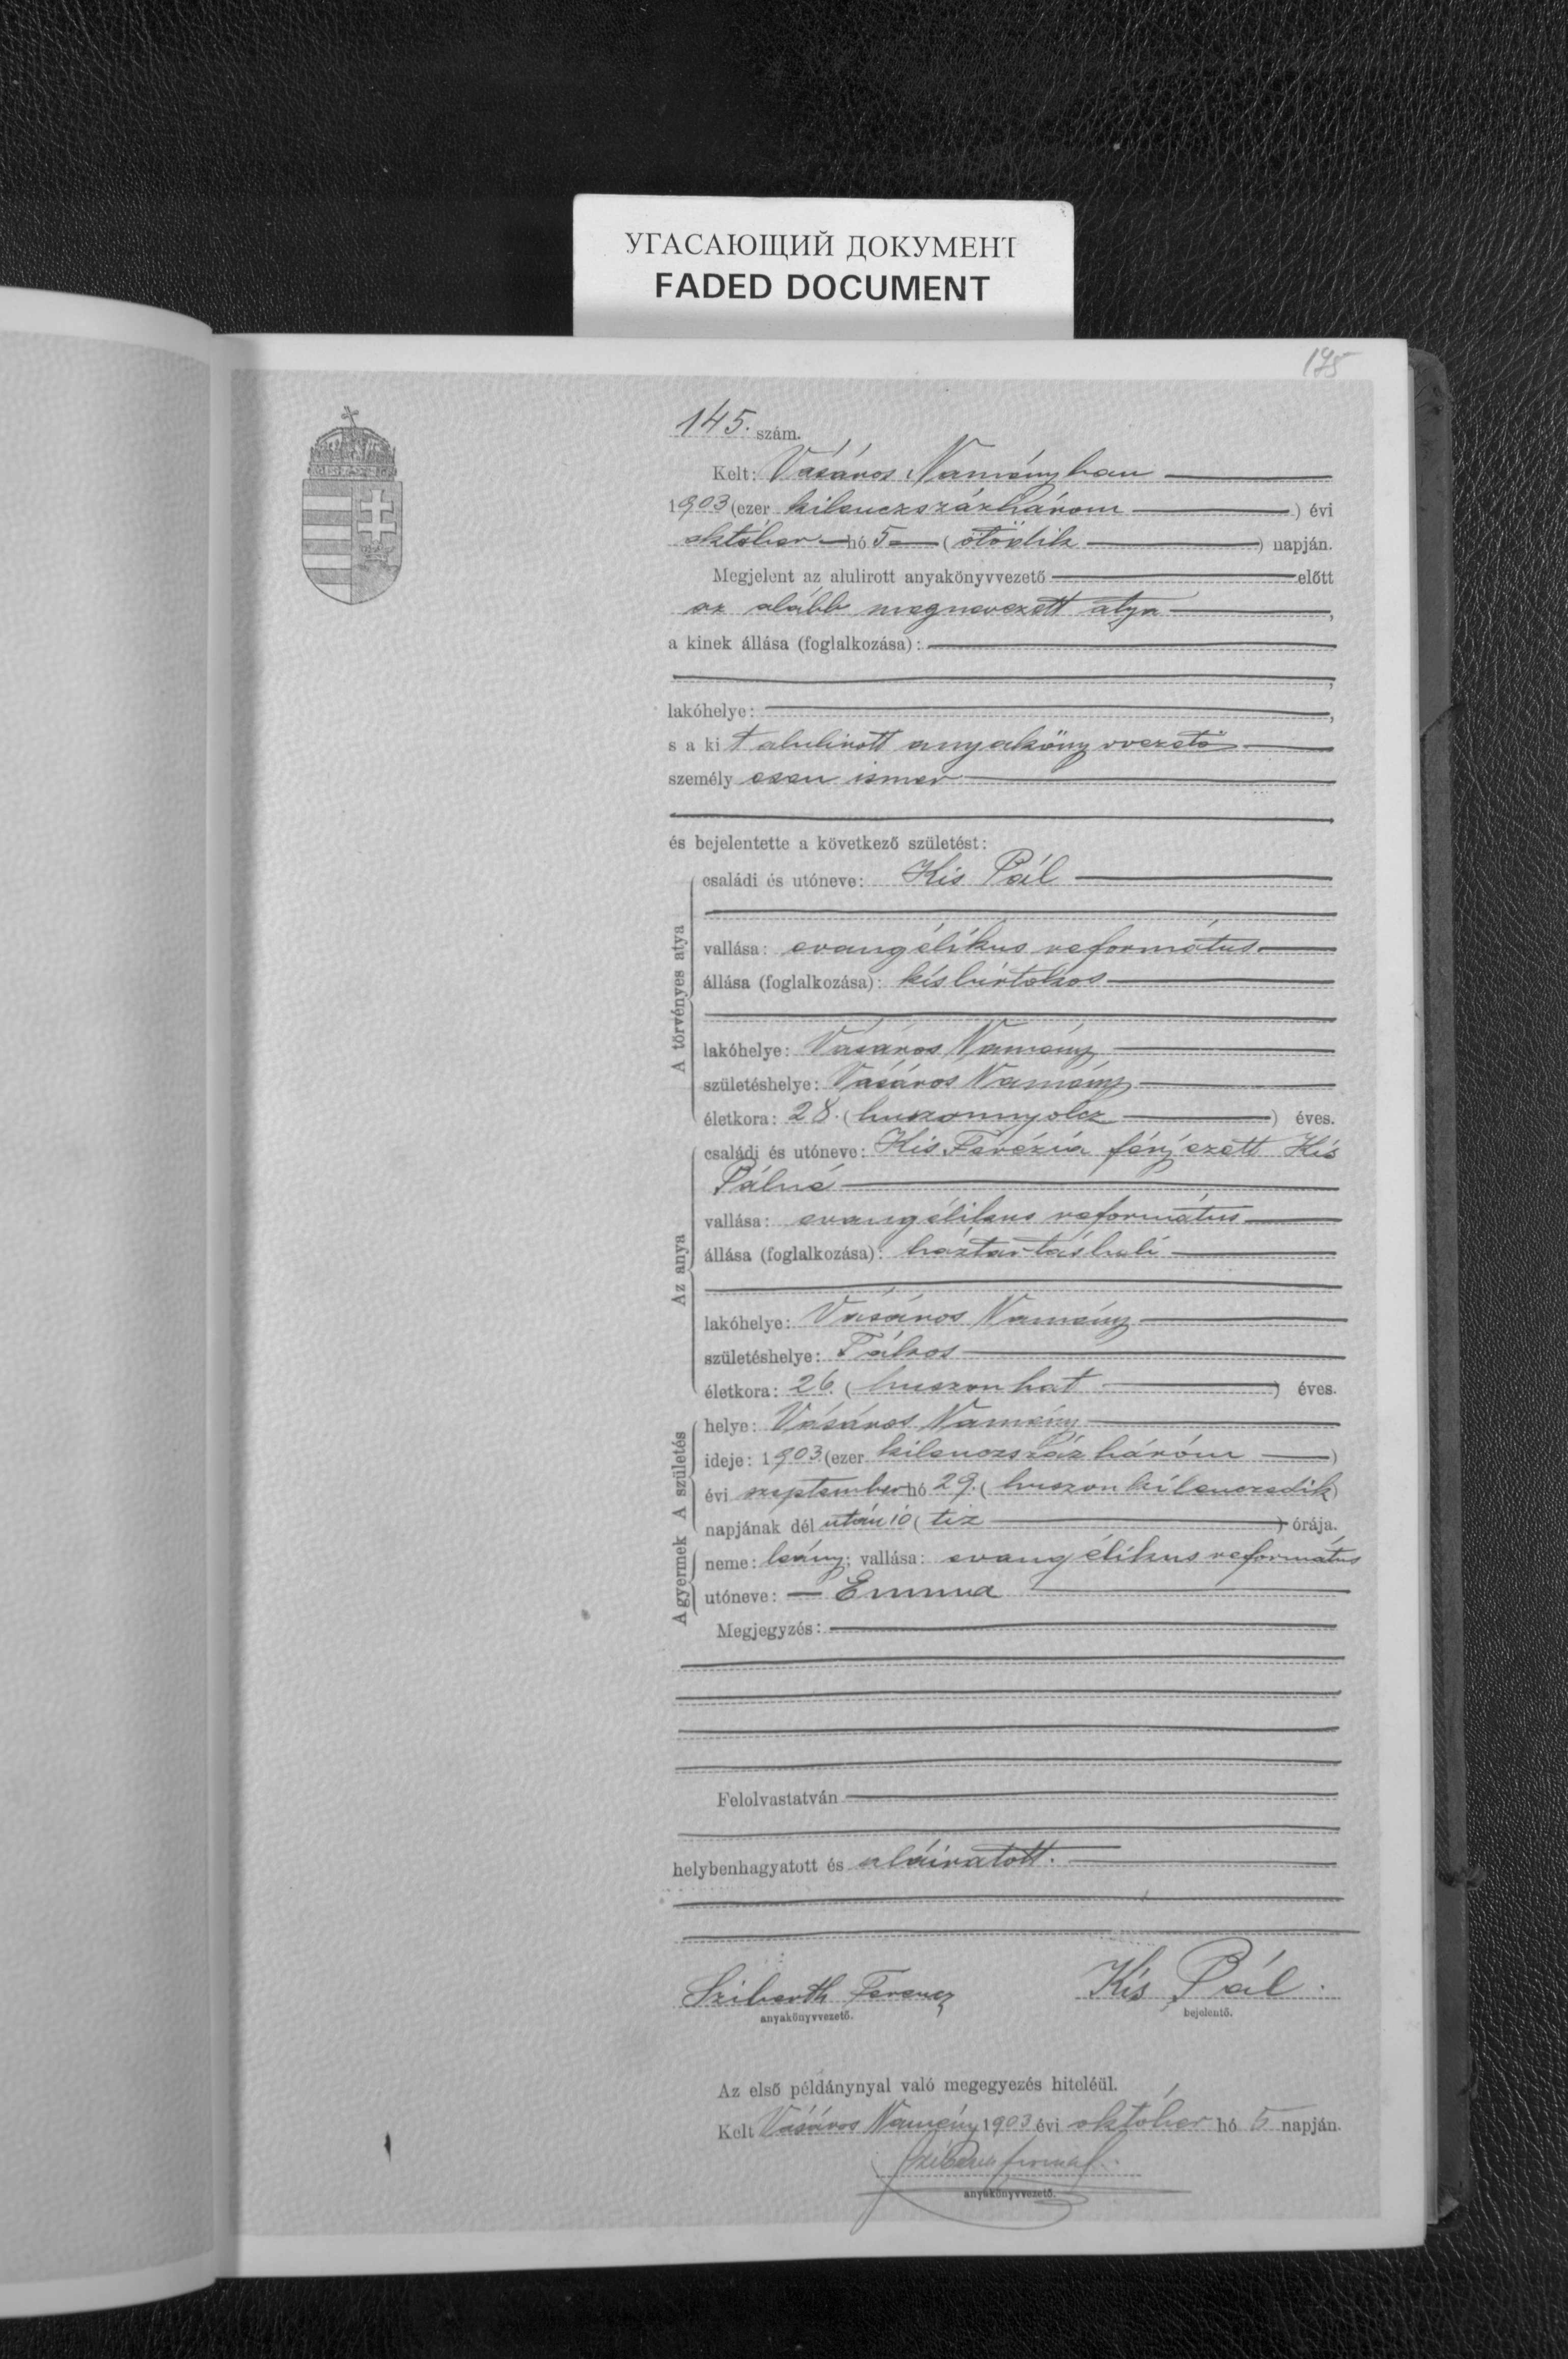 УГАСАЮЩИЙ ДОКУМЕНТ
FADED DOCUMENT
175
145. szám.
Kelt: Vásáros Naményban
1903 (ezer kilenczszázhárom) évi
október hó 5 (ötödik) napján.
Megjelent az alulirott anyakönyvvezető előtt
az alább megnevezett atya,
a kinek állása (foglalkozása):
,
lakóhelye: ,
s a kit alulirott anyakönyvvezető
személyesen ismer
és bejelentette a következő születést:
A törvényes atya
családi és utóneve: Kis Pál
vallása: evangélikus református
állása (foglalkozása): kisbirtokos
lakóhelye: Vásáros Namény
születéshelye: Vásáros Namény
életkora: 28. (huszonnyolcz) éves.
Az anya
családi és utóneve: Kis Terézia férjezett Kis
Pálné
vallása: evangélikus református
állása (foglalkozása): háztartásbeli
lakóhelye: Vásáros Namény
születéshelye: Tákos
életkora: 26. (huszonhat) éves.
A születés
helye: Vásáros Namény
ideje: 1903. (ezer kilenczszáz három)
évi szeptember hó 29. (huszonkilenczedik)
napjának dél után 10 (tiz) órája.
A gyermek
neme: leány; vallása: evangélikus református
utóneve: Emma
Megjegyzés:
Felolvastatván
helybenhagyatott és aláiratott.
Sziberth Ferencz Kis Pál.
anyakönyvvezető. bejelentő.
Az első példánynyal való megegyezés hiteléül.
Kelt Vásáros Namény 1903 évi október hó 5 napján.
anyakönyvvezető.